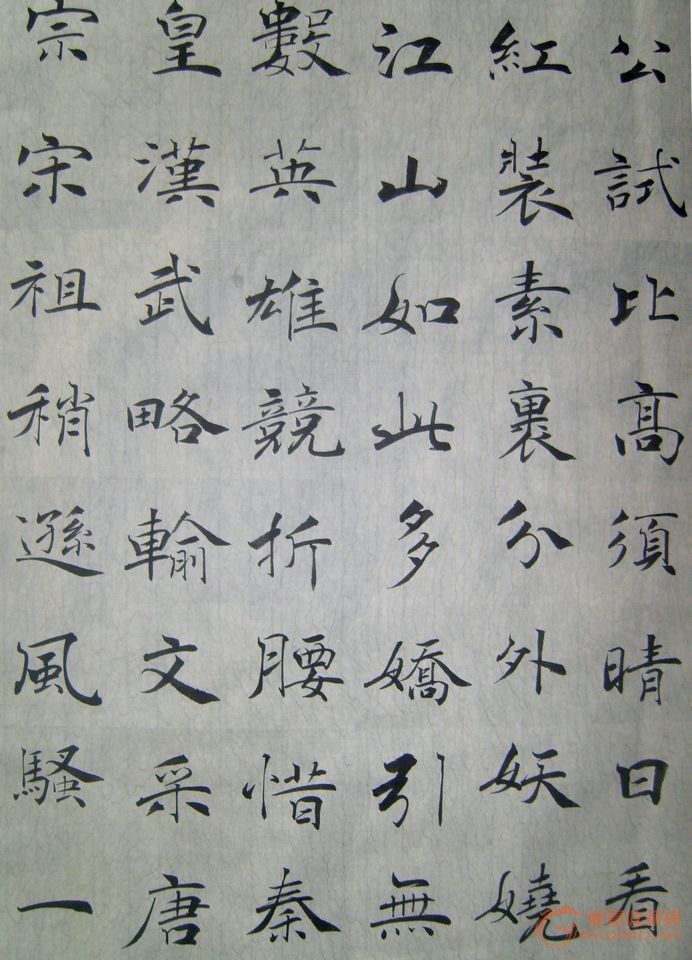 公試比高須晴日看
紅裝素裹分外妖嬈
江山如此多嬌引無
數英雄競折腰惜秦
皇漢武略輸文采唐
宗宋祖稍遜風騷一